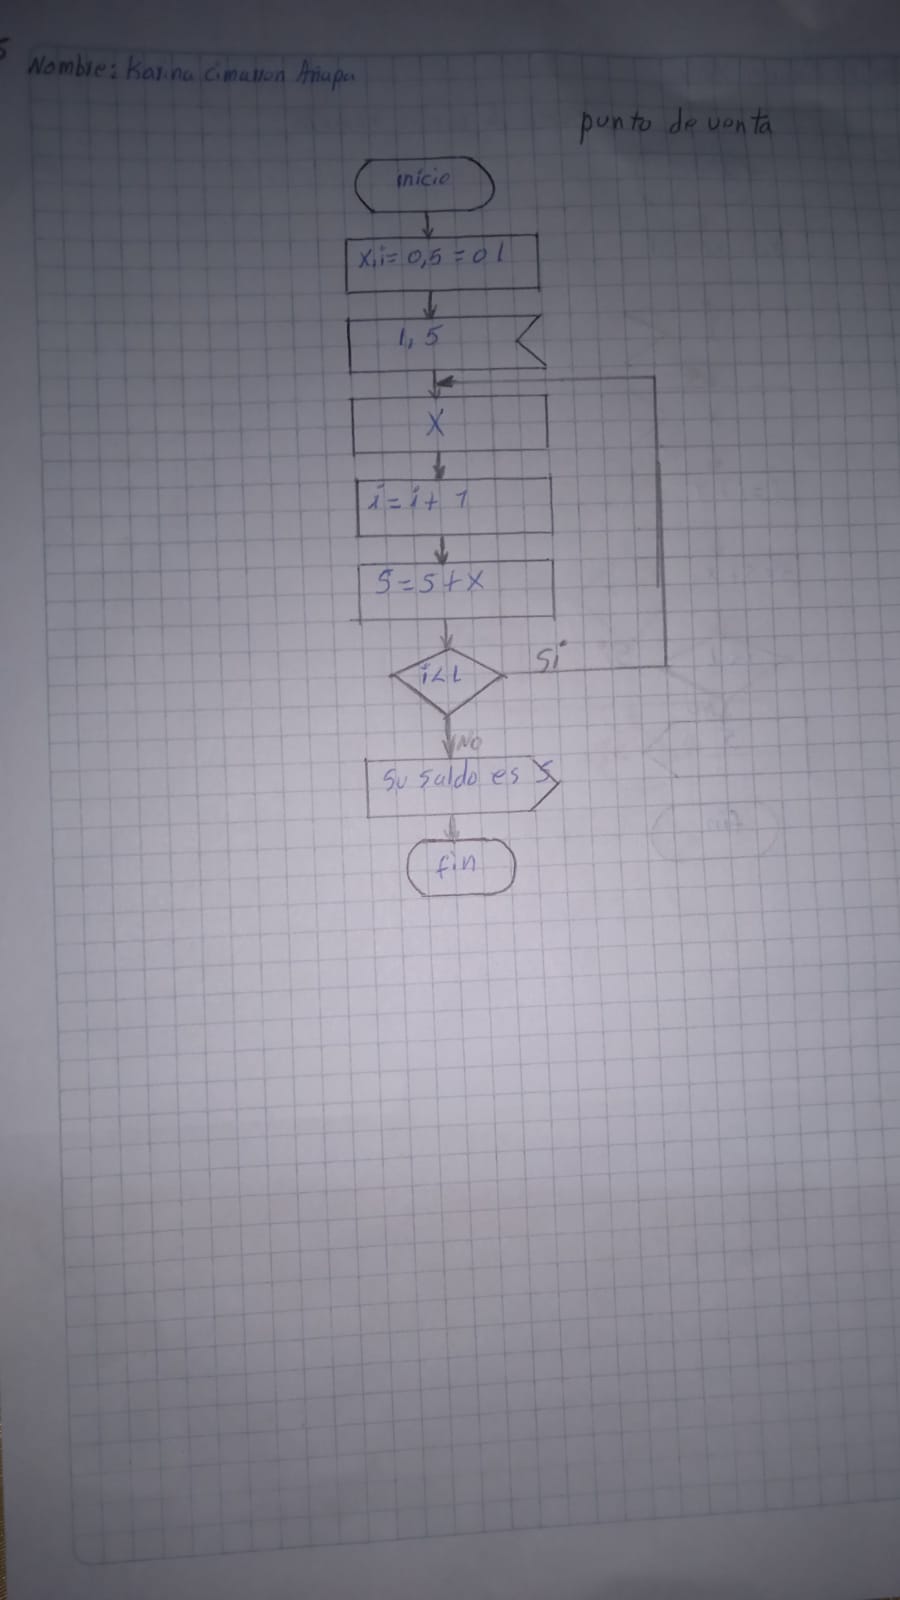 Nombre: Karina Cimarron Añapa
punto de venta
inicio
x,i= 0,5 = 0 l
l, 5
X
i = i + 1
5 = 5 + x
i < L
Si
No
Su saldo es S
fin